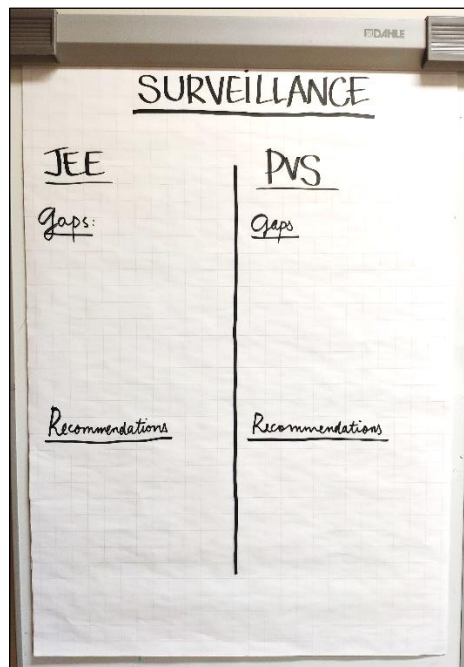 DAHLE
SURVEILLANCE
JEE
gaps:
Recommendations
PVS
gaps
Recommendations